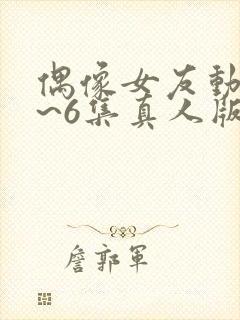 偶像女友動
~6集真人版
詹郭軍